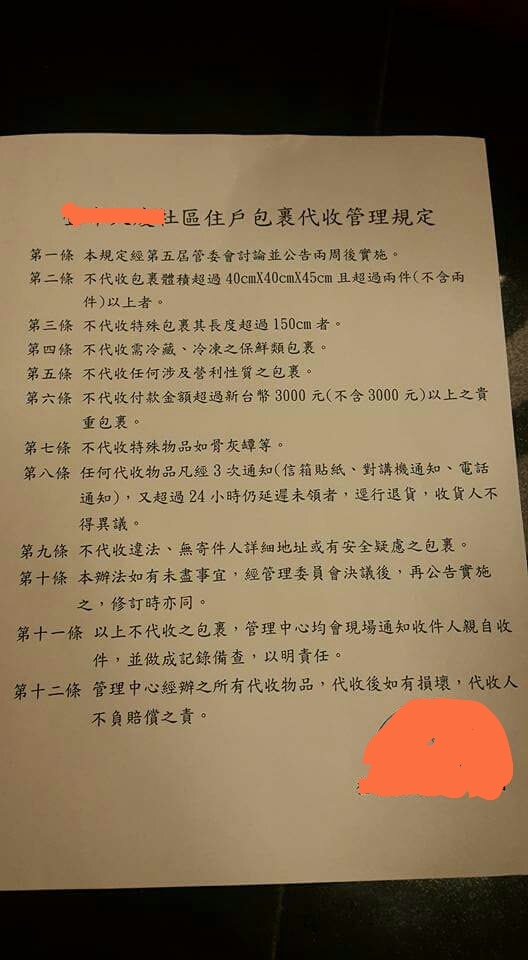 社區住戶包裹代收管理規定
第一條 本規定經第五屆管委會討論並公告兩周後實施。
第二條 不代收包裹體積超過 40cmX40cmX45cm 且超過兩件(不含兩
件)以上者。
第三條 不代收特殊包裹其長度超過 150cm 者。
第四條 不代收需冷藏、冷凍之保鮮類包裹。
第五條 不代收任何涉及營利性質之包裹。
第六條 不代收付款金額超過新台幣 3000 元(不含 3000 元)以上之貴
重包裹。
第七條 不代收特殊物品如骨灰罈等。
第八條 任何代收物品凡經 3 次通知(信箱貼紙、對講機通知、電話
通知)，又超過 24 小時仍延遲未領者，逕行退貨，收貨人不
得異議。
第九條 不代收違法、無寄件人詳細地址或有安全疑慮之包裹。
第十條 本辦法如有未盡事宜，經管理委員會決議後，再公告實施
之，修訂時亦同。
第十一條 以上不代收之包裹，管理中心均會現場通知收件人親自收
件，並做成記錄備查，以明責任。
第十二條 管理中心經辦之所有代收物品，代收後如有損壞，代收人
不負賠償之責。